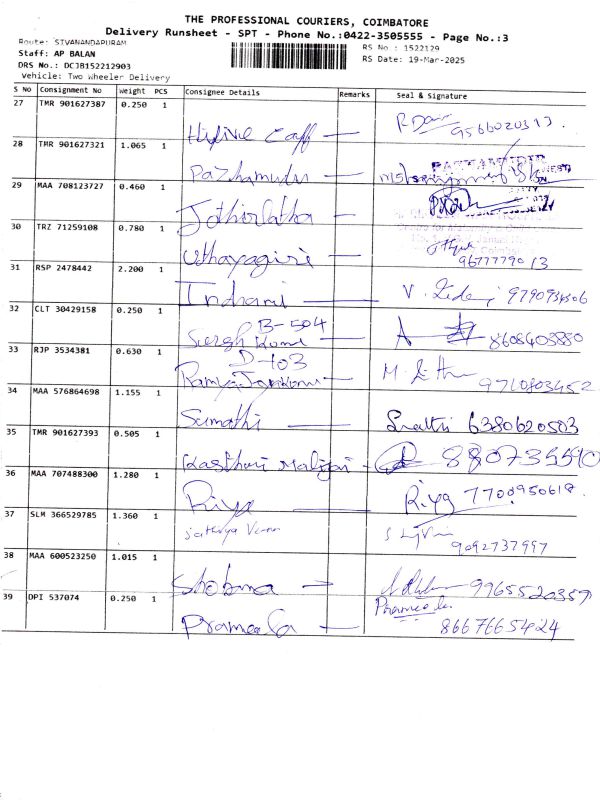 THE PROFESSIONAL COURIERS, COIMBATORE
Delivery Runsheet - SPT - Phone No.:0422-3505555 - Page No.:3
Route: SIVANANDAPURAM
RS No : 1522129
Staff: AP BALAN
RS Date: 19-Mar-2025
DRS No.: DCJB152212903
Vehicle: Two Wheeler Delivery
S No Consignment No Weight PCS Consignee Details Remarks Seal & Signature
27 TMR 901627387 0.250 1
9566020313
28 TMR 901627321 1.065 1
Pazhamudir
29 MAA 708123727 0.460 1
Jothirlatha
30 TRZ 71259108 0.780 1
Uthayagiri 9677779013
31 RSP 2478442 2.200 1
Indhani 9790934506
32 CLT 30429158 0.250 1
B-504
8608403880
33 RJP 3534381 0.630 1
D-103
34 MAA 576864698 1.155 1
Sumathi 6380620503
35 TMR 901627393 0.505 1
Kasthuri 880735510
36 MAA 707488300 1.280 1
Riya Riya 7700950618
37 SLM 366529785 1.360 1
Sathya 9092737997
38 MAA 600523250 1.015 1
Shobana 9965520357
39 DPI 537074 0.250 1
Prameela Prameela
8667665424